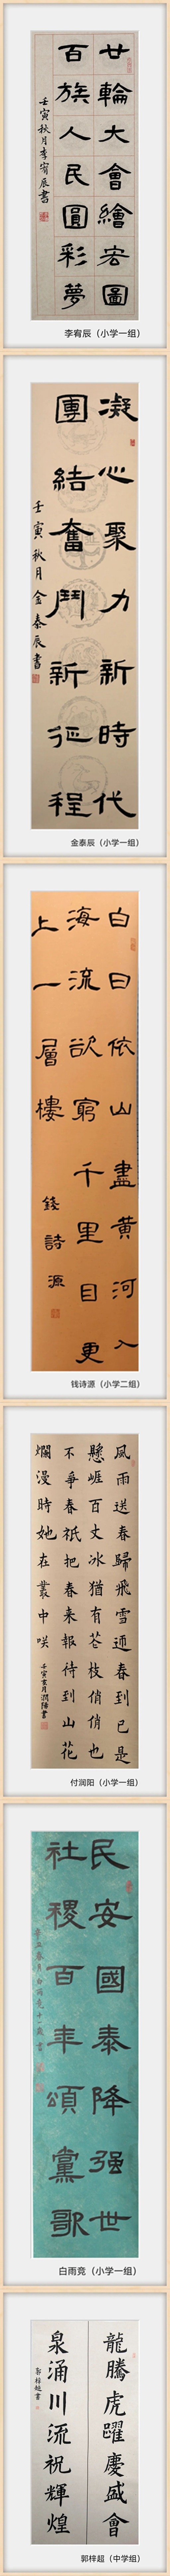 廿輪大會繪宏圖
百族人民圓彩夢
壬寅秋月李宥辰書
李宥辰（小学一组）
凝心聚力新時代
團結奮鬥新征程
壬寅秋月金泰辰書
金泰辰（小学一组）
白日依山盡黄河入
海流欲窮千里目更
上一層樓
錢詩源
钱诗源（小学二组）
風雨送春歸飛雪迎春到已是
懸崖百丈冰猶有花枝俏俏也
不爭春祇把春来報待到山花
爛漫時她在叢中咲
壬寅亥月潤陽書
付润阳（小学一组）
民安國泰降强世
社稷百年頌黨歌
白雨竞（小学一组）
龍騰虎躍慶盛會
泉涌川流祝輝煌
郭梓超書
郭梓超（中学组）